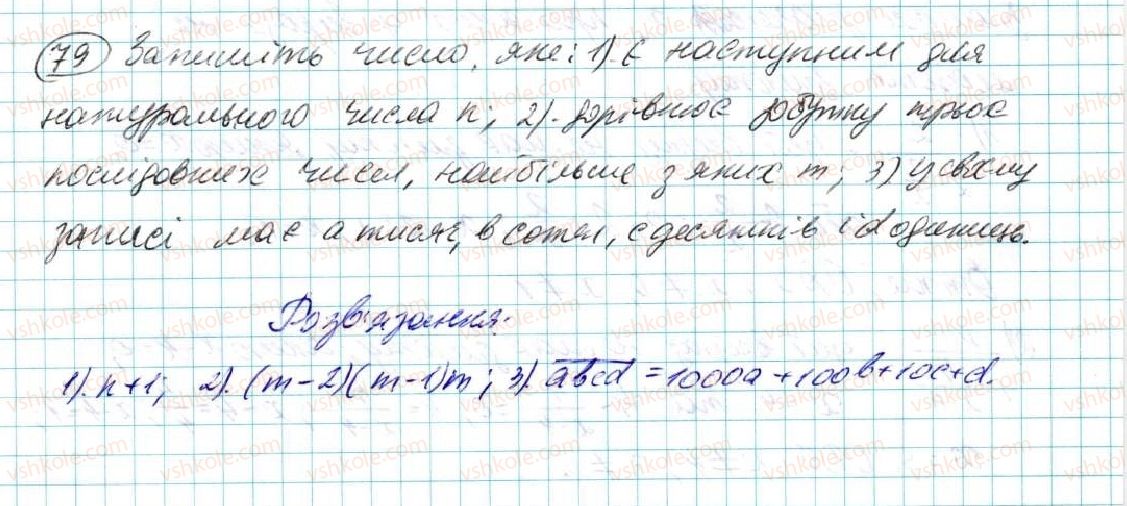 79 Запишіть число, яке: 1). є наступним для
натурального числа n; 2). дорівнює добутку трьох
послідовних чисел, найбільше з яких m; 3) у своєму
записі має a тисяч, b сотен, c десятків і d одиниць.
Розв'язання:
1). n+1; 2). (m-2)(m-1)m; 3). abcd = 1000a+100b+10c+d.